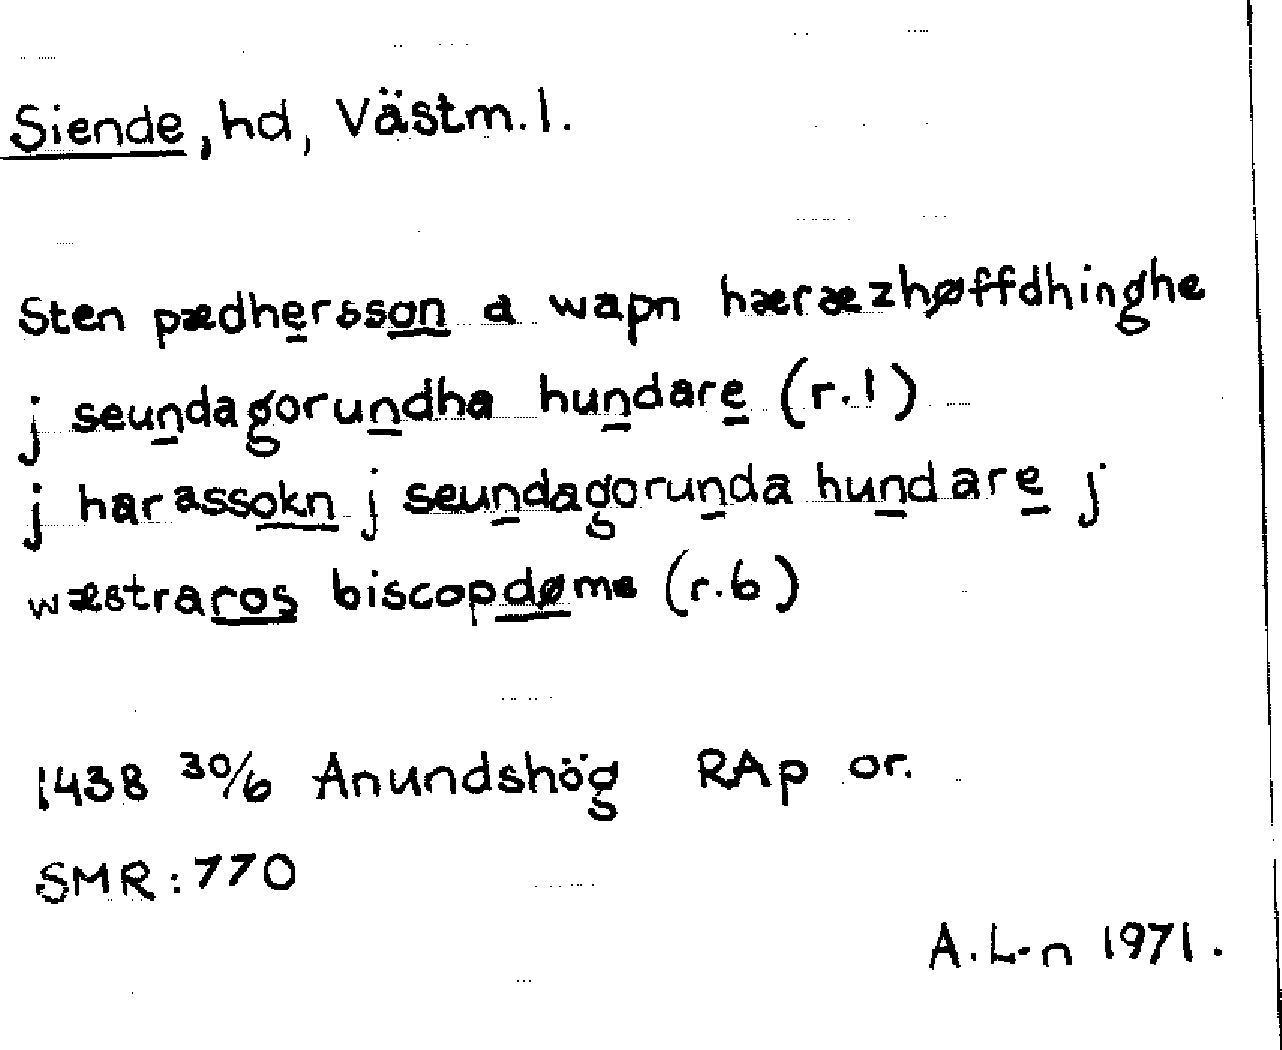 Siende, hd, Västm. l.
Sten pædhersson a wapn hæræzhøffdhinghe
j seundagorundha hundare (r.1)
j harassokn j seundagorunda hundare j
wæstraros biscopdøme (r.6)
1438 30/6 Anundshög RAp or.
SMR: 770
A. L-n 1971.